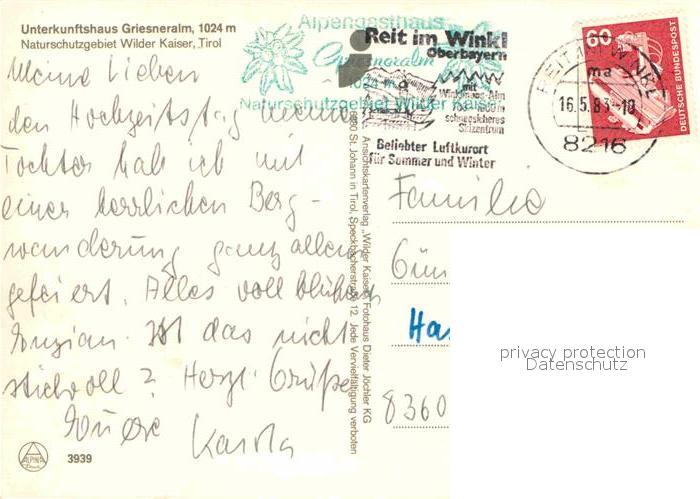 Unterkunftshaus Griesneralm, 1024 m
Naturschutzgebiet Wilder Kaiser, Tirol
Alpengasthaus
Griesneralm
1024 m
Naturschutzgebiet Wilder Kaiser
Reit im Winkl
Oberbayern
mit
Winklmoos-Alm
schneesicheres
Skizentrum
Beliebter Luftkurort
für Sommer und Winter
REIT IM WINKL
ma
16.5.83-10
8216
60
DEUTSCHE BUNDESPOST
Meine Lieben
den Hochzeitstag meiner
Tochter hab ich mit
einer herrlichen Berg-
wanderung ganz allein
gefeiert. Alles voll blühend
Enzian. Ist das nicht
stilvoll? Herzl. Grüße
Euere
Karola
Ansichtskartenverlag „Wilder Kaiser", Fotohaus Dieter Jöchler KG
6380 St. Johann in Tirol, Speckbacherstraße 12. Jede Vervielfältigung verboten
Familie
Gün
Ha
8360
privacy protection
Datenschutz
ALPINA
3939